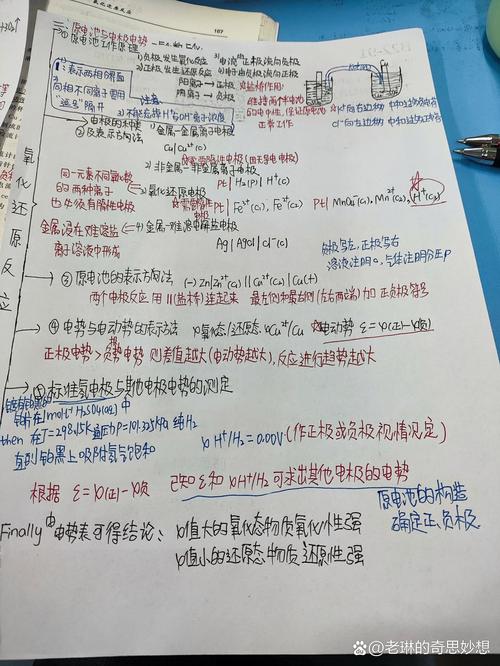 氧化还原反应
187
三、原电池与电极电势
①原电池工作原理
1)负极发生氧化反应
2)正极发生还原反应
3)电流由正极流向负极
4)电子由负极流向正极
阳离子→正极
阴离子→负极
盐桥作用:
维持两个半电池
的电中性,保证原电池
正常工作
1)"|"表示两相界面
同相不同离子需用
"逗号"隔开
注意
K⁺向右边物
Cl⁻向左边物
②电极的种类
及表示方法
1)金属—金属离子电极
Cu|Cu²⁺(c)
需惰性电极
2)非金属—非金属离子电极
Pt|H₂(p)|H⁺(c)
同一元素不同氧化数
的两种离子
也必须有惰性电极
3)氧化还原电极
Pt|Fe³⁺(c₁), Fe²⁺(c₂)
Pt|MnO₄⁻(c₁), Mn²⁺(c₂), H⁺(c₃)
金属浸在难溶盐
离子溶液中形成
4)金属—难溶电解盐电极
Ag|AgCl|Cl⁻(c)
负极写左,正极写右
溶液注明c,气体注明分压p
③原电池的表示方法
(-)Zn|Zn²⁺(c₁)||Cu²⁺(c₂)|Cu(+)
两个电极反应用||(盐桥)连起来
最左侧和最右侧(左右两端)加正负符号
④电势与电动势的表示方法
φ氧化态/还原态
φCu²⁺/Cu
电动势 ε=φ(正)-φ(负)
正极电势>负极电势 则差值越大(电动势越大),反应进行趋势越大
⑤标准氢电极与其他电极电势的测定
铂片在1mol·L⁻¹ H₂SO₄(aq)中
then 在T=298.15K p=101.325kPa 纯H₂
直到铂黑上吸附氢气饱和
φ H⁺/H₂=0.00V(作正极或负极视情况定)
根据 ε=φ(正)-φ负
已知ε和φH⁺/H₂可求出其他电极的电势
原电池的构造
确定正、负极
Finally 由电势表可得结论:
φ值大的氧化态物质氧化性强
φ值小的还原态物质还原性强
老琳的奇思妙想